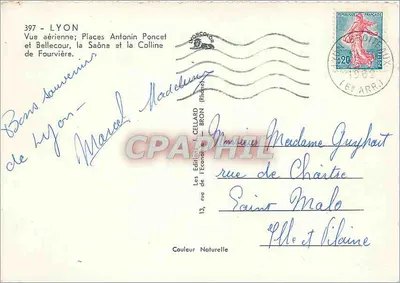 397 - LYON
Vue aérienne; Places Antonin Poncet
et Bellecour, la Saône et la Colline
de Fourvière.
Bons souvenirs
de Lyon -
Marcel Madeleine
CPARHIL
Les Editions CELLARD
13, rue de l'Economie - BRON (Rhône)
0,20
1962
(6E ARRT)
Monsieur Madame Guyhart
rue de Chartre
Saint Malo
Ille et Vilaine
Couleur Naturelle